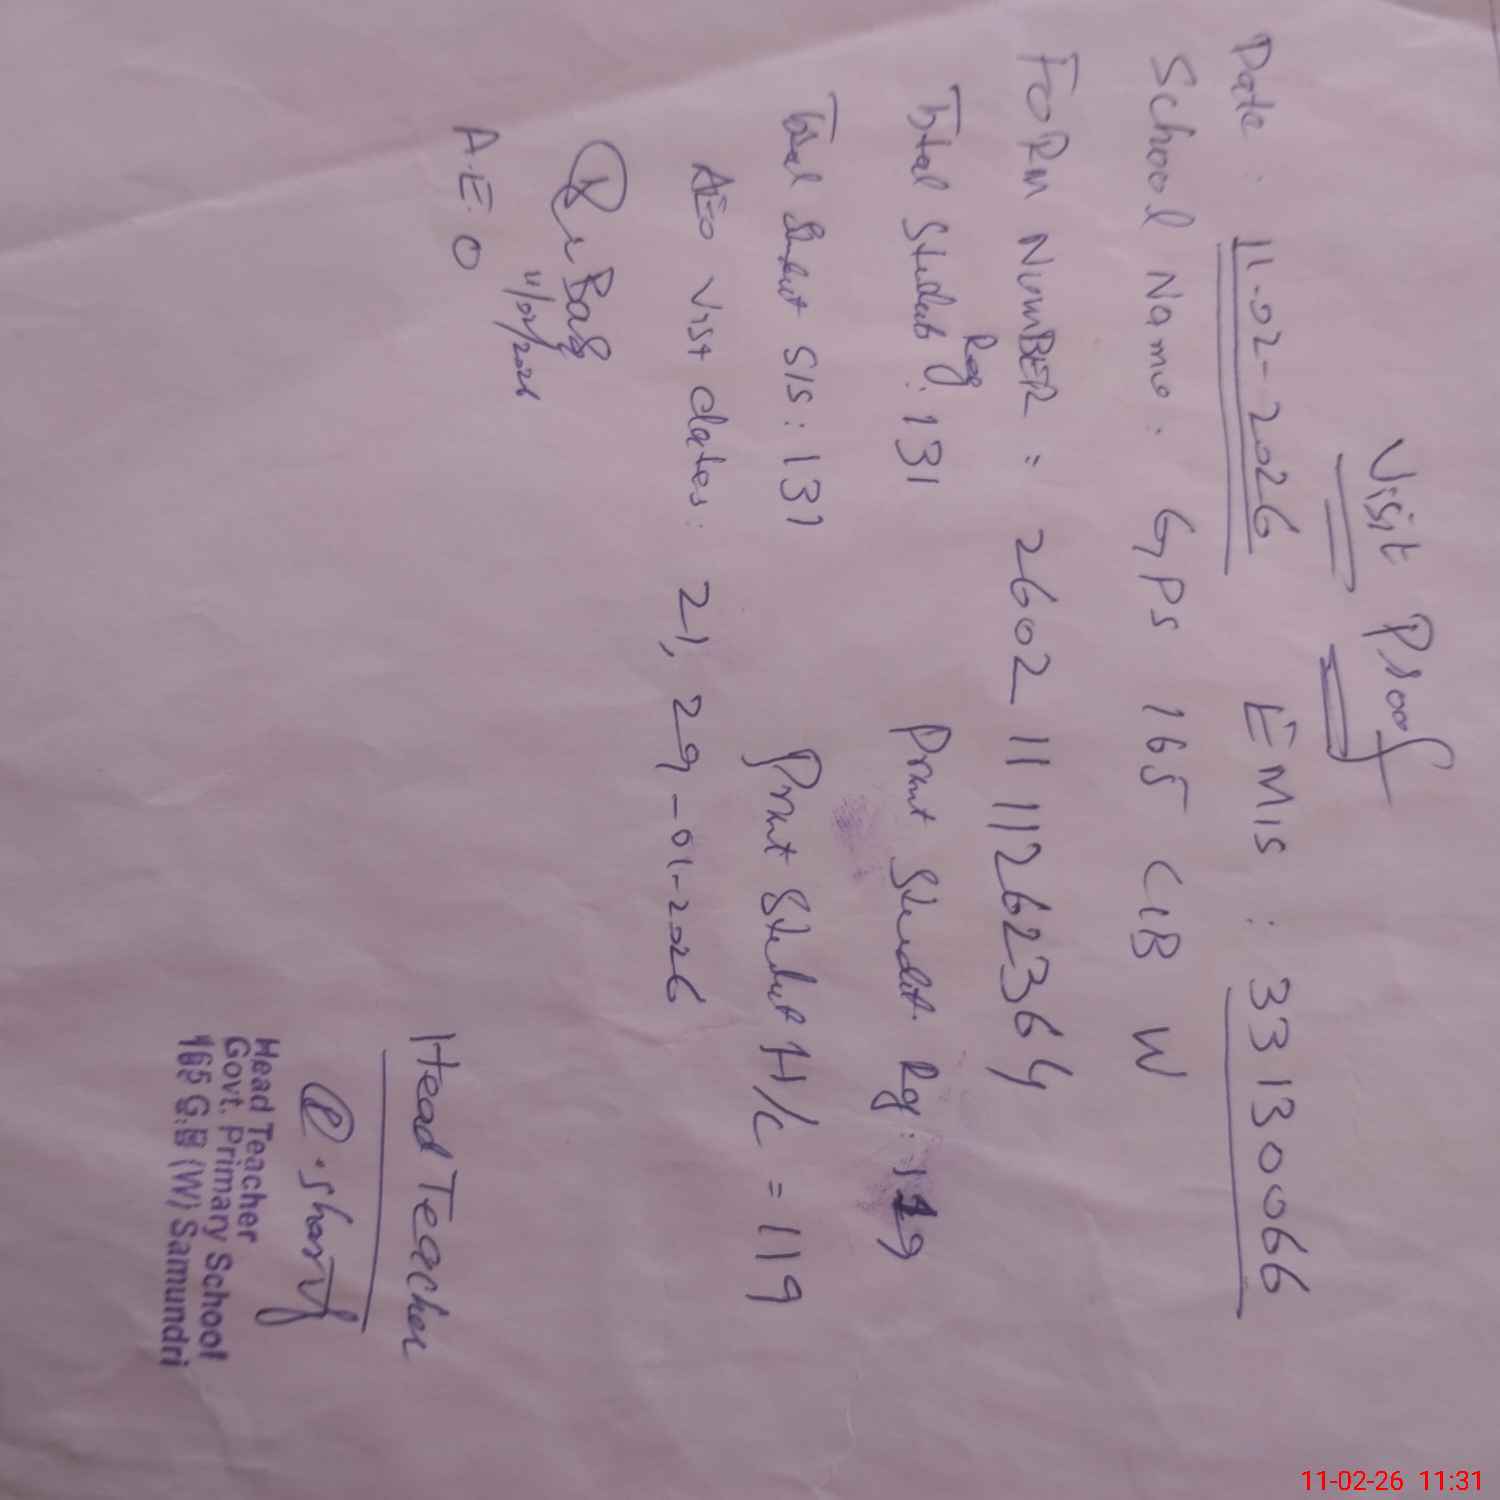 Visit Proof
Date: 11-02-2026 EMIS: 33130066
School Name: GPS 165 GB W
FORM NUMBER = 2602 11 11262364
Total Student Reg: 131 Prsnt Student Rg: 119
Total Student SIS: 131 Prsnt Student H/C = 119
AEO Visit dates: 21, 29-01-2026
11/02/2026
A.E.O
Head Teacher
Head Teacher
Govt. Primary School
165 G.B (W) Samundri
11-02-26 11:31